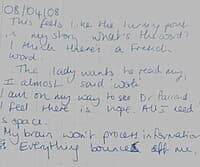 08/04/08
This feels like the turning point
in my story. What's the word?
I think there's a French
word.
The lady wants to read my
I almost said work.
I am on my way to see Dr
I feel there is hope. All I need
is space.
My brain won't process information
Everything bounces off me.